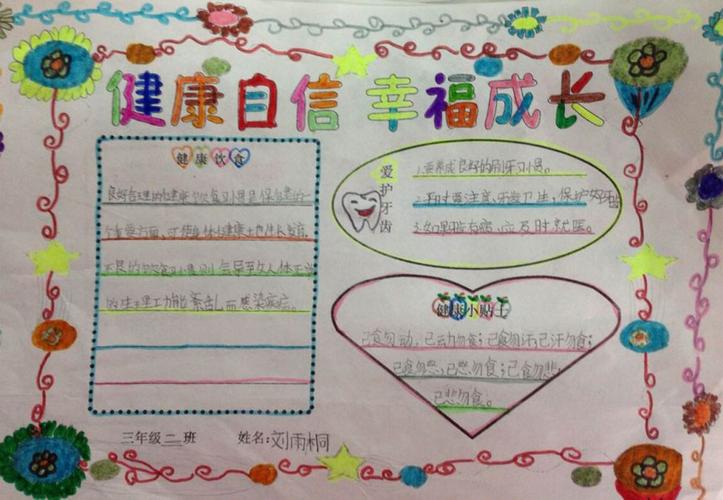 健康自信 幸福成长
健康饮食
良好合理的健康饮食习惯是保健的一
个重要方面,可使身体健康地生长、发育
不良的饮食习惯则会导致人体正常
的生理功能紊乱而感染疾病。
爱护牙齿
1.要养成良好的刷牙习惯。
2.平时要注意牙齿卫生,保护好牙齿
3.如果牙有病,应及时就医。
健康小贴士
已食勿动,已动勿食;已食勿汗,已汗勿食;
已食勿怒,已怒勿食;已食勿悲,
已悲勿食。
三年级二班 姓名:刘雨桐